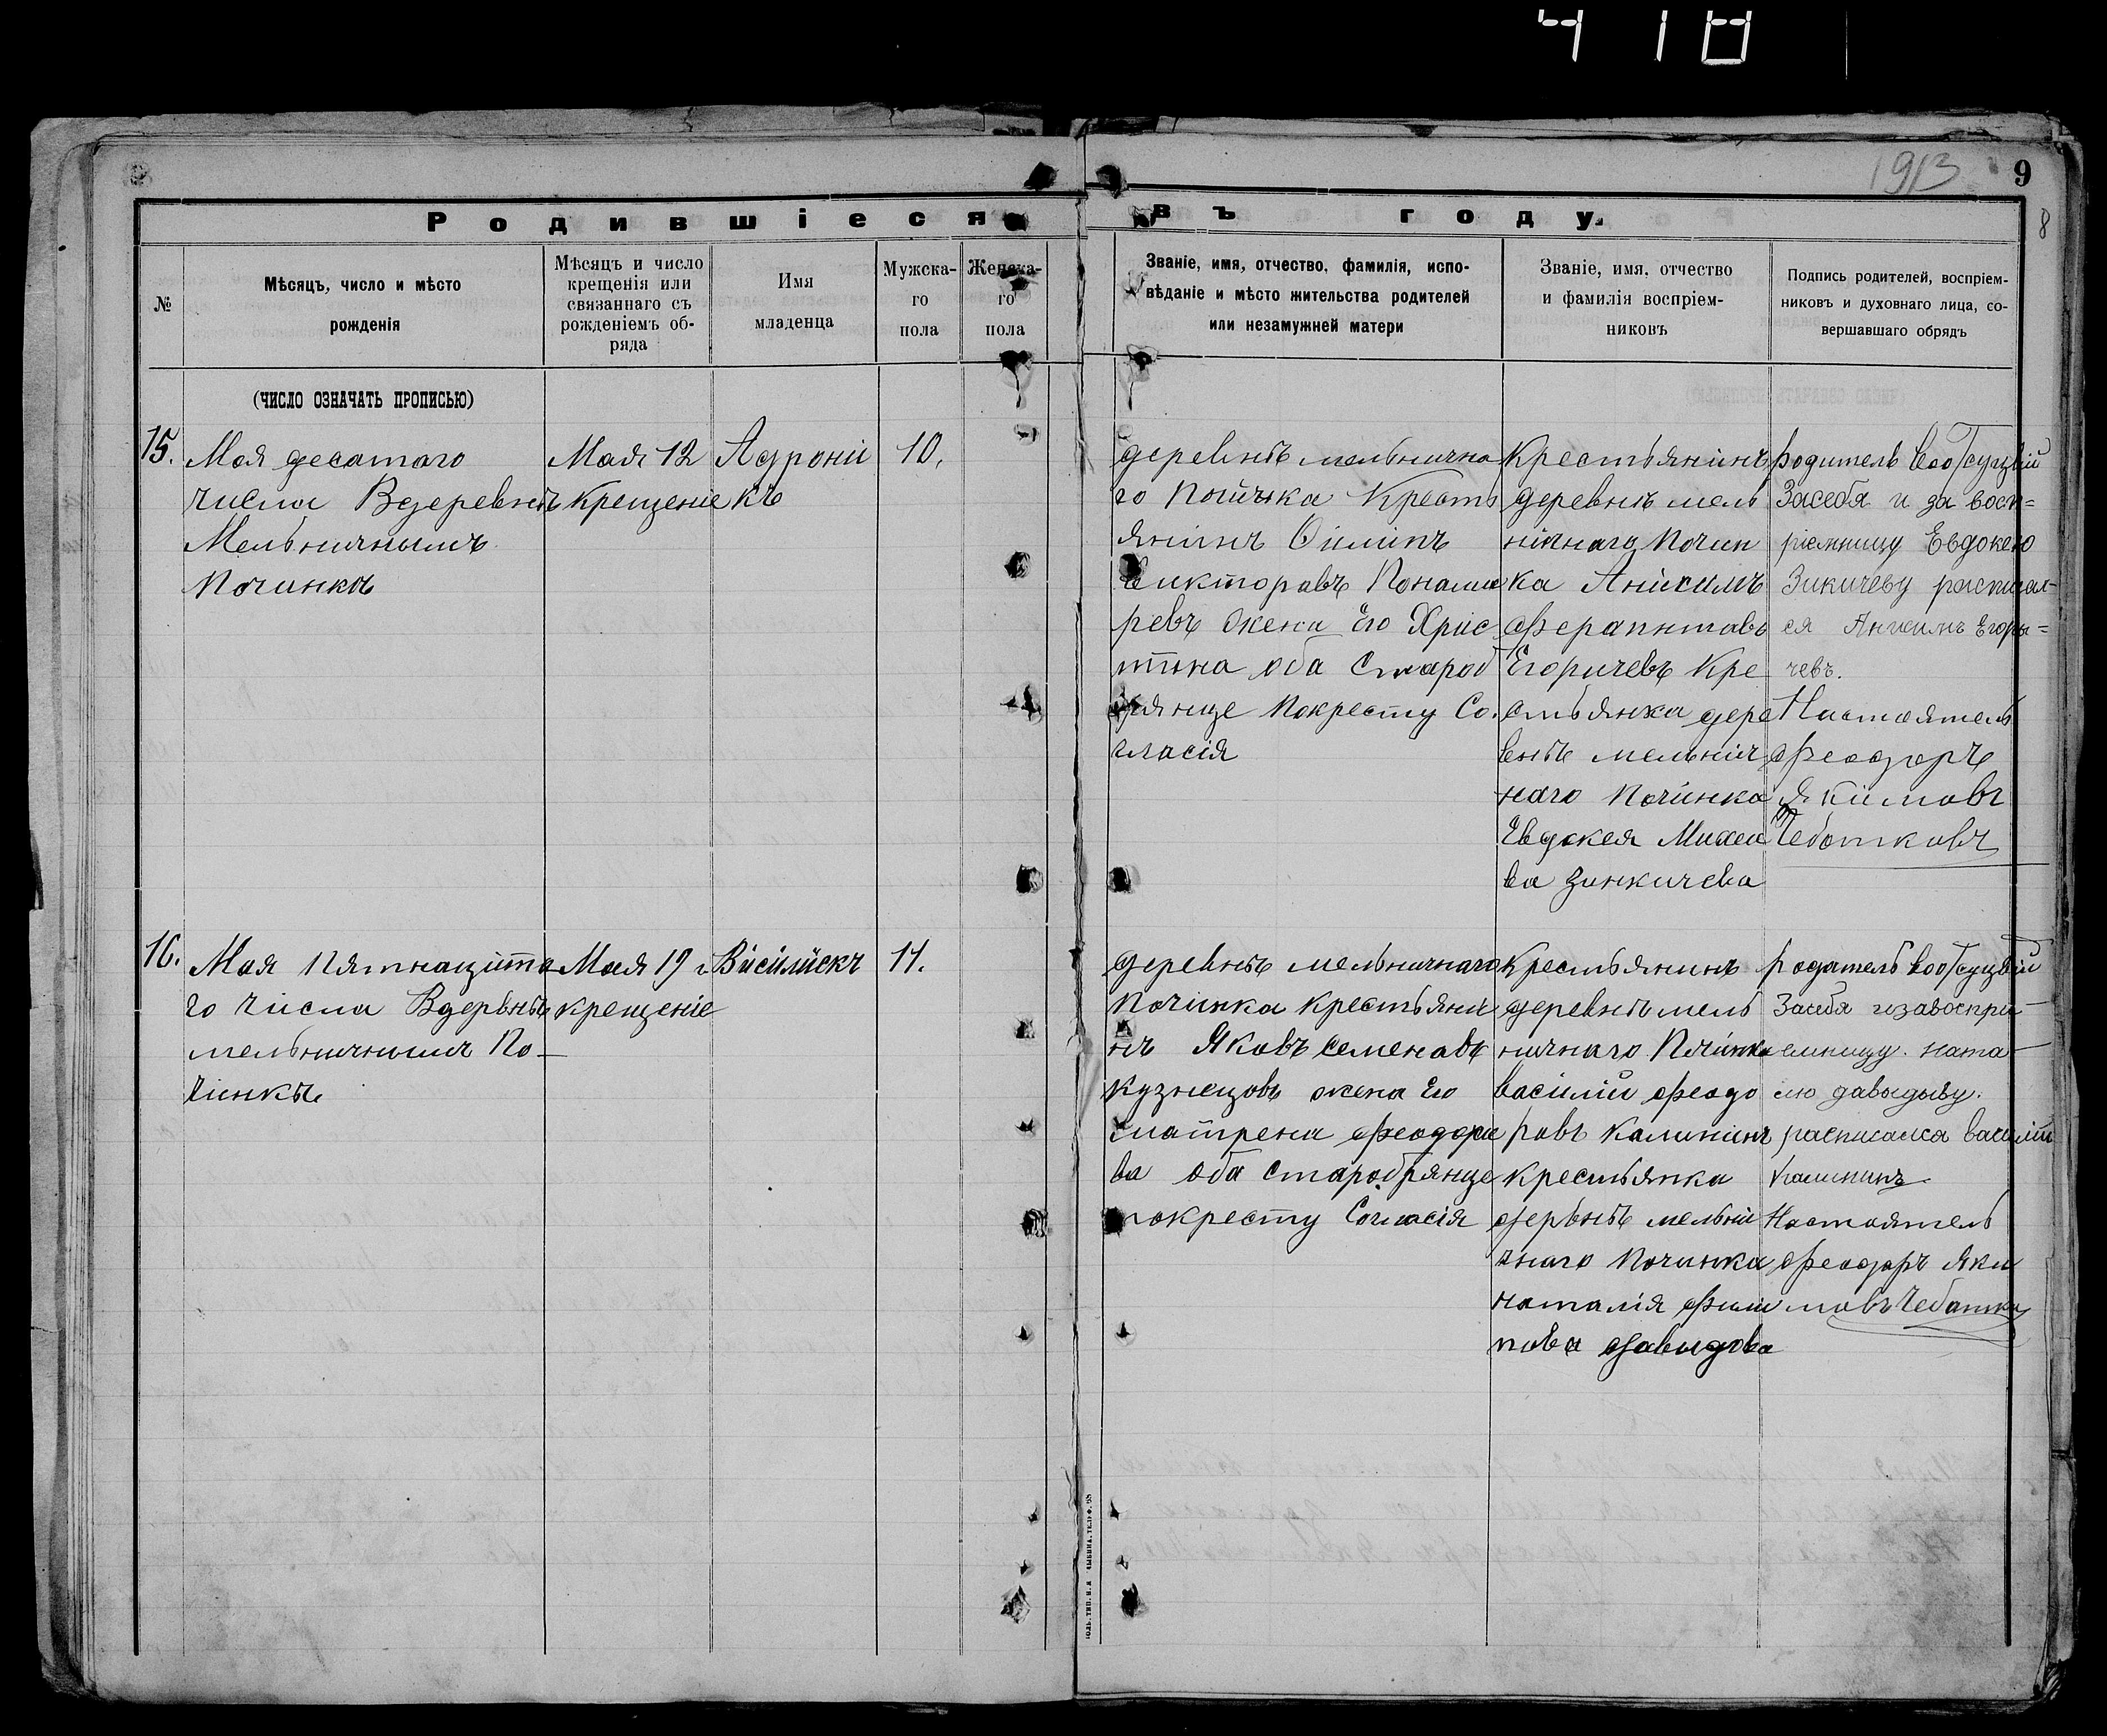 410
1913
9
8
Родившіеся въ году.
№
Мѣсяцъ, число и мѣсто
рожденія
Мѣсяцъ и число
крещенія или
связаннаго съ
рожденіемъ об-
ряда
Имя
младенца
Мужска-
го
пола
Женска-
го
пола
Званіе, имя, отчество, фамилія, испо-
вѣданіе и мѣсто жительства родителей
или незамужней матери
Званіе, имя, отчество
и фамилія воспріем-
никовъ
Подпись родителей, воспріем-
никовъ и духовнаго лица, со-
вершавшаго обрядъ
(ЧИСЛО ОЗНАЧАТЬ ПРОПИСЬЮ)
15.
Мая десатаго
числа Вдеревнѣ
Мельничнымъ
Починкѣ
Мая 12
крещеніе
Адроні
къ
10.
деревнѣ мельнична
го Почінка Кресть
янінъ Филипъ
Викторавъ Понама
ревъ Жена Его Хрис
тина оба Староб
рянце Покресту Со.
гласія
Крестьянинъ
деревнѣ мель
нічнаго Почин
ка Анісимъ
Ферапнтавъ
Егоричевъ Кре
стьянка дере
внѣ мельніч
наго Почінка
Евдокея Михеи
ва Зинкичева
родитель
Засебя и за восп=
ріемницу Евдокею
Зикичеву расписал-
ся Анисимъ Егоры=
чевъ.
Настоятель
Феодоръ
Якімовъ
Чеботковъ
16.
Мая Пятнацита
го числа Вдервнѣ
мельничнымъ По-
чінкѣ
Мая 19 г
крещеніе
Васілискъ
11.
деревнѣ мельничнаго
Починка крестьяни
нъ Яковъ Семенавъ
Кузнецовъ жена Его
матрена Феодора
ва оба старобрянце
покресту Согласія
крестьянинъ
деревнѣ мель
ничнаго Почінка
василій Феодо
равъ Калининъ
крестьянка
дервнѣ мельні
чнаго Починка
наталія Филі
пова Давидова
родатель
Засебя изавоспри-
емницу ната-
лю давыдыву.
расписалса василій
Калининъ
Настоятель
Феодоръ Яки
мовъ Чебатка